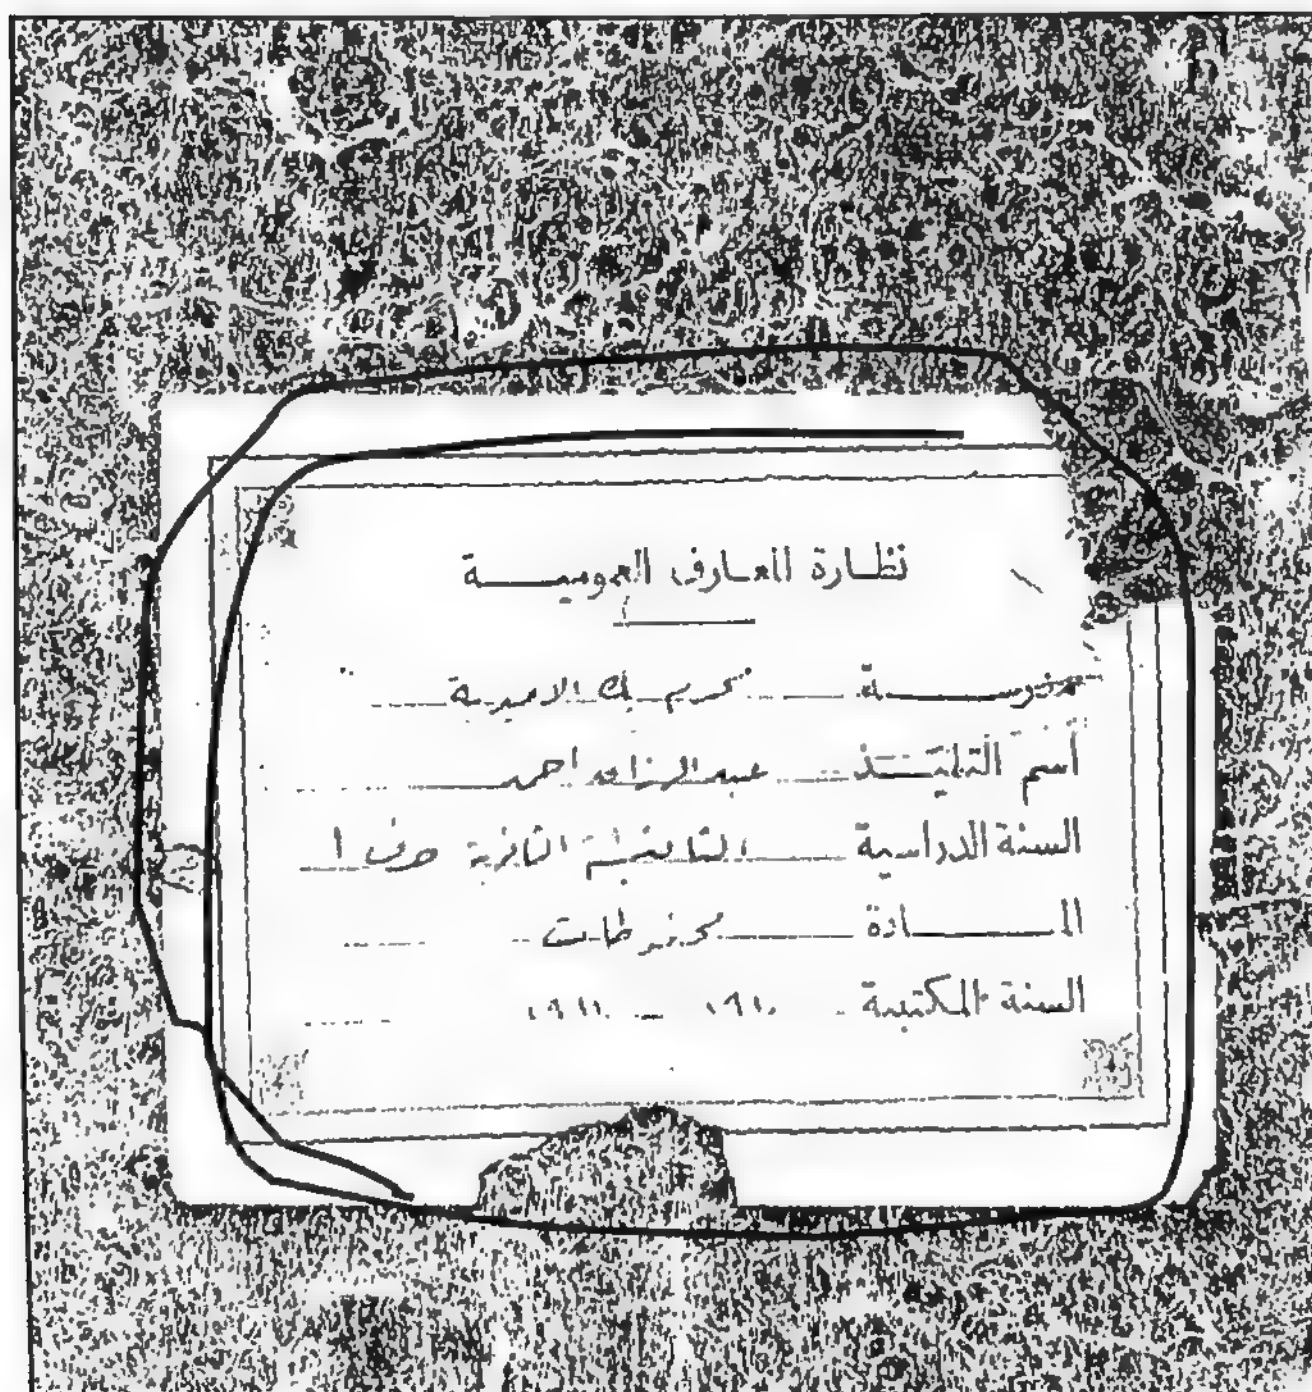 نظارة المعارف العمومية
مدرسة محرم بك الاميرية
اسم التلميذ عبد الرزاق احمد
السنة الدراسية الثانية حرف ا
المادة
السنة المكتبية ١٩١٠ — ١٩١١